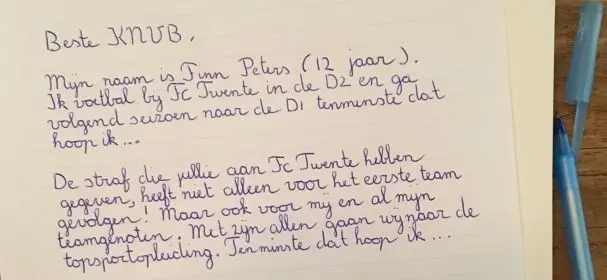 Beste KNVB,
Mijn naam is Finn Peters (12 jaar).
Ik voetbal by Fc Twente in de D2 en ga
volgend seizoen naar de D1 tenminste dat
hoop ik...
De straf die jullie aan Fc Twente hebben
gegeven, heeft niet alleen voor het eerste team
gevolgen! Maar ook voor my en al mijn
teamgenoten. Met zyn allen gaan wy naar de
topsportopleiding. Tenminste dat hoop ik...